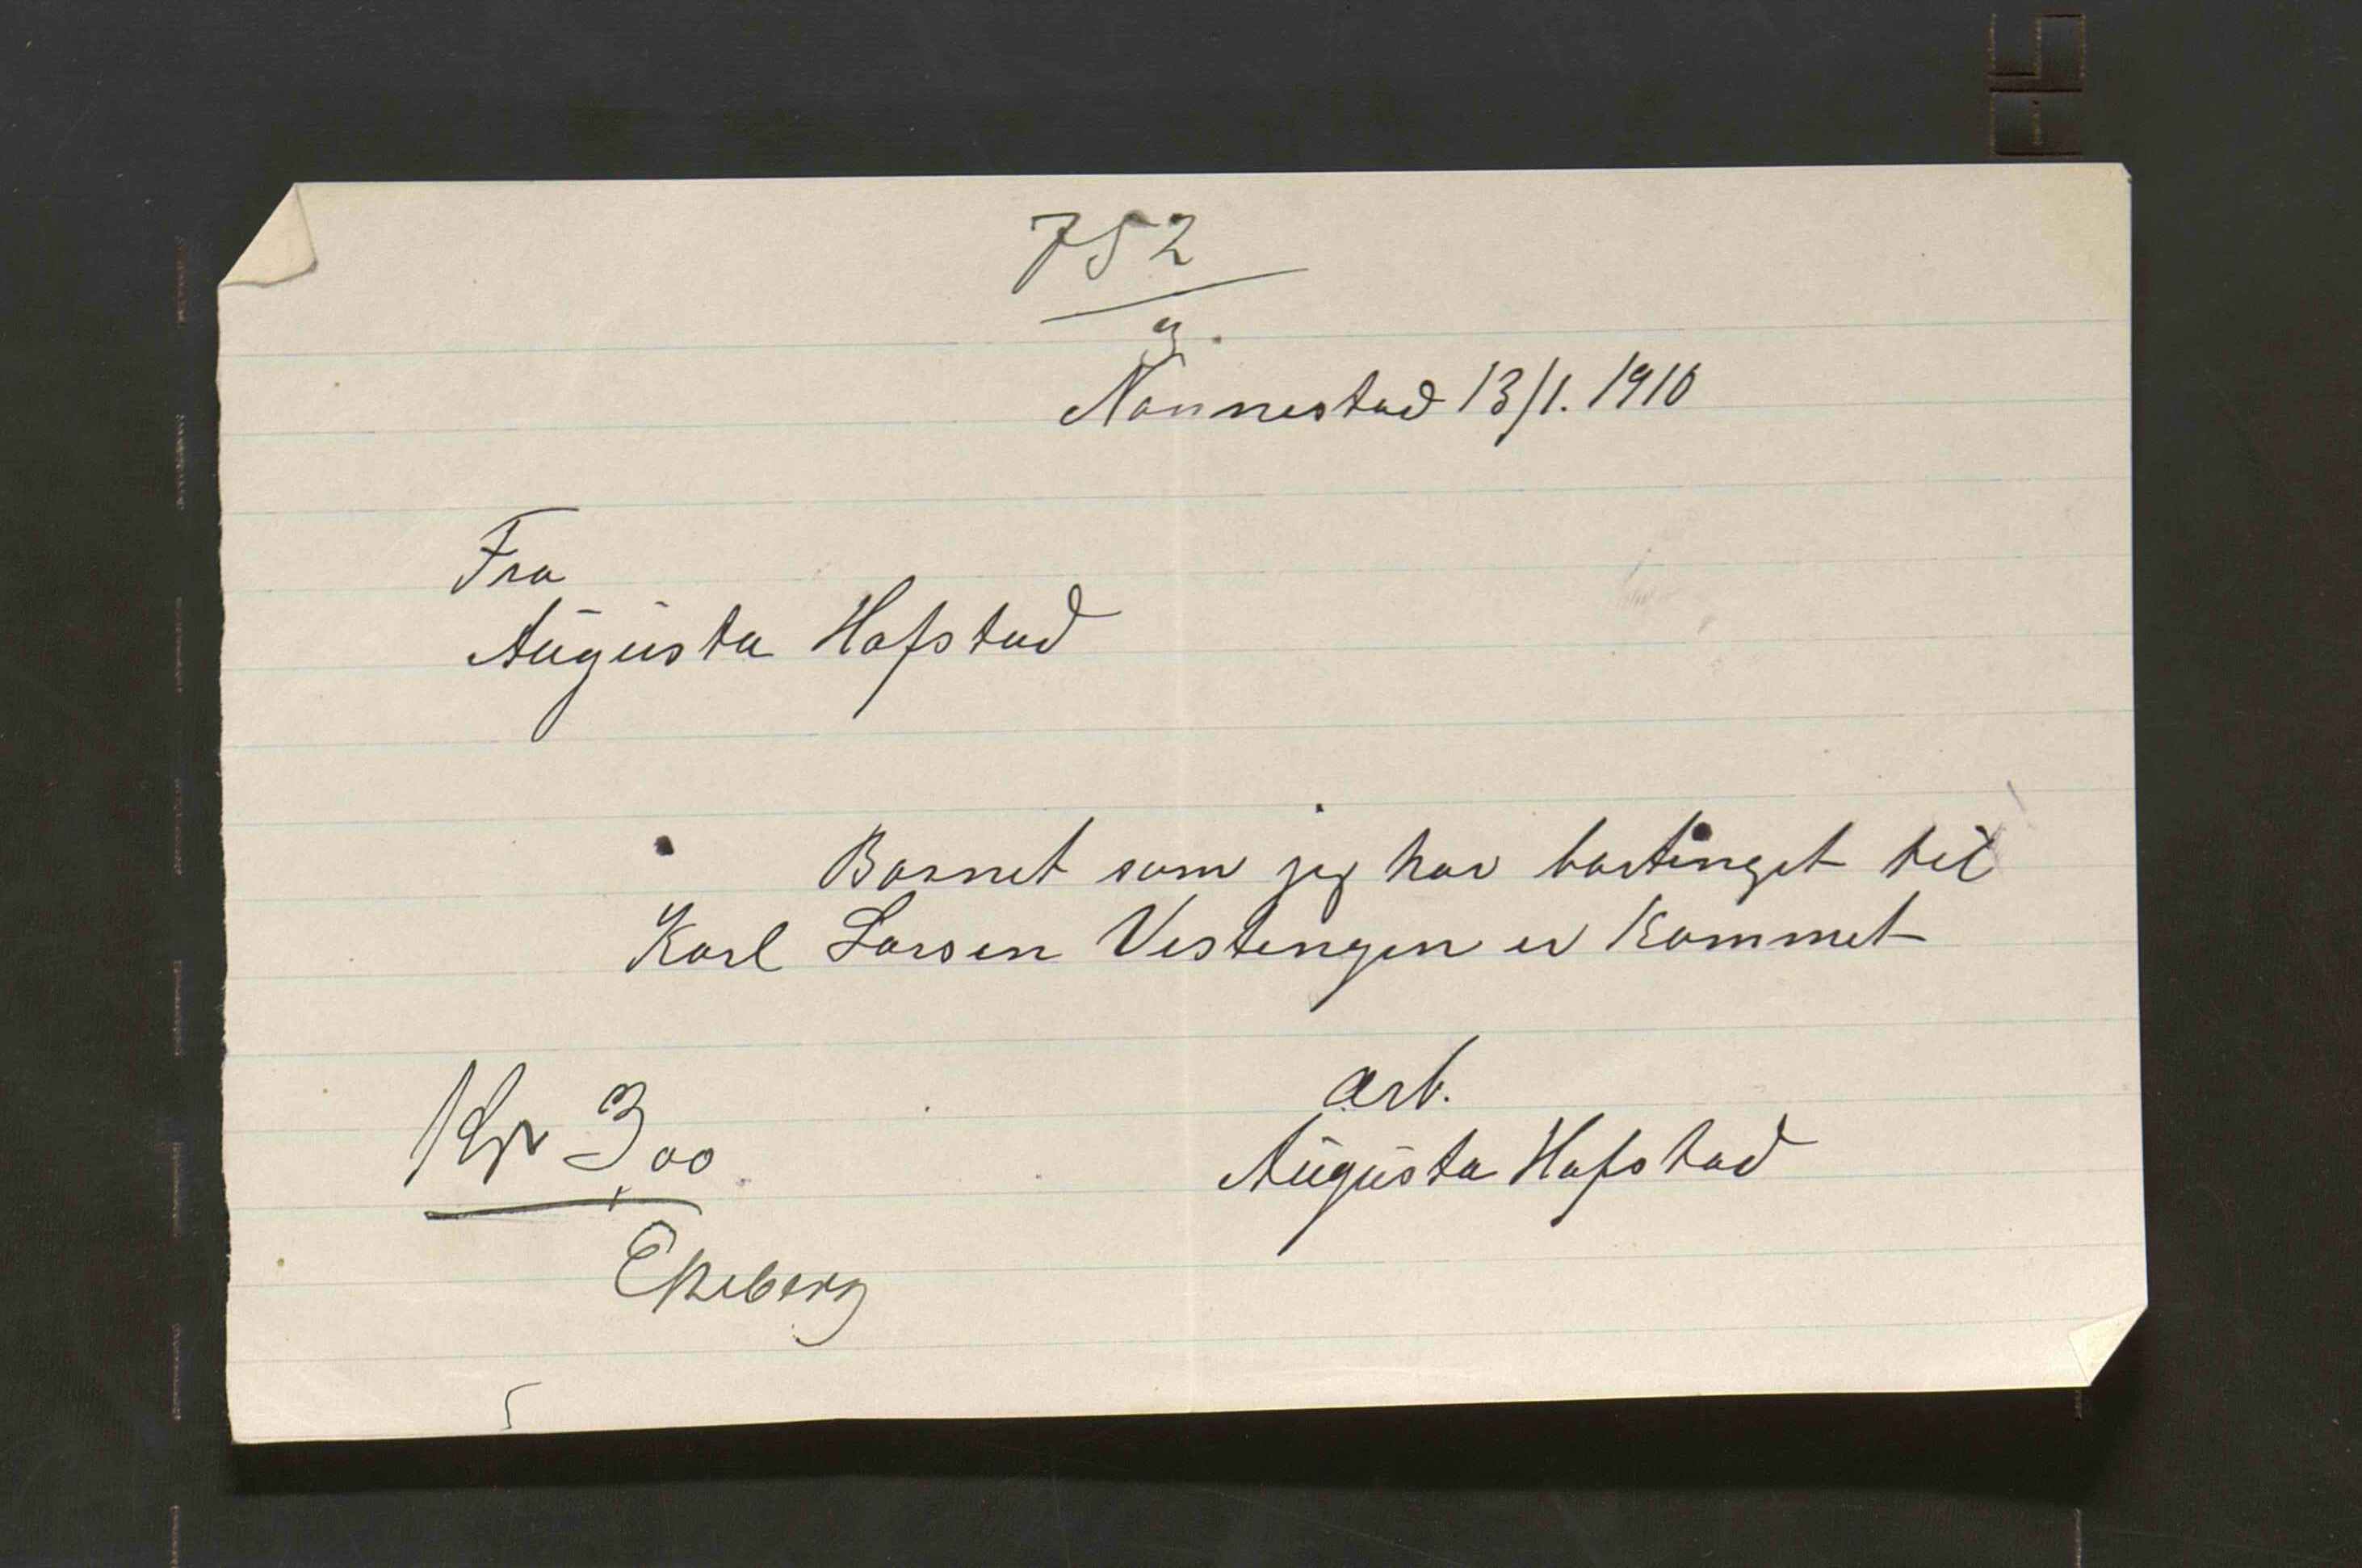 752
Nannestad 13/1. 1910
Fra
Augusta Hafstad
Barnet som jeg har bortinget til
Karl Larsen Vestengen er kommet
arb.
Augusta Hafstad
Kr 3,00
Ekeberg